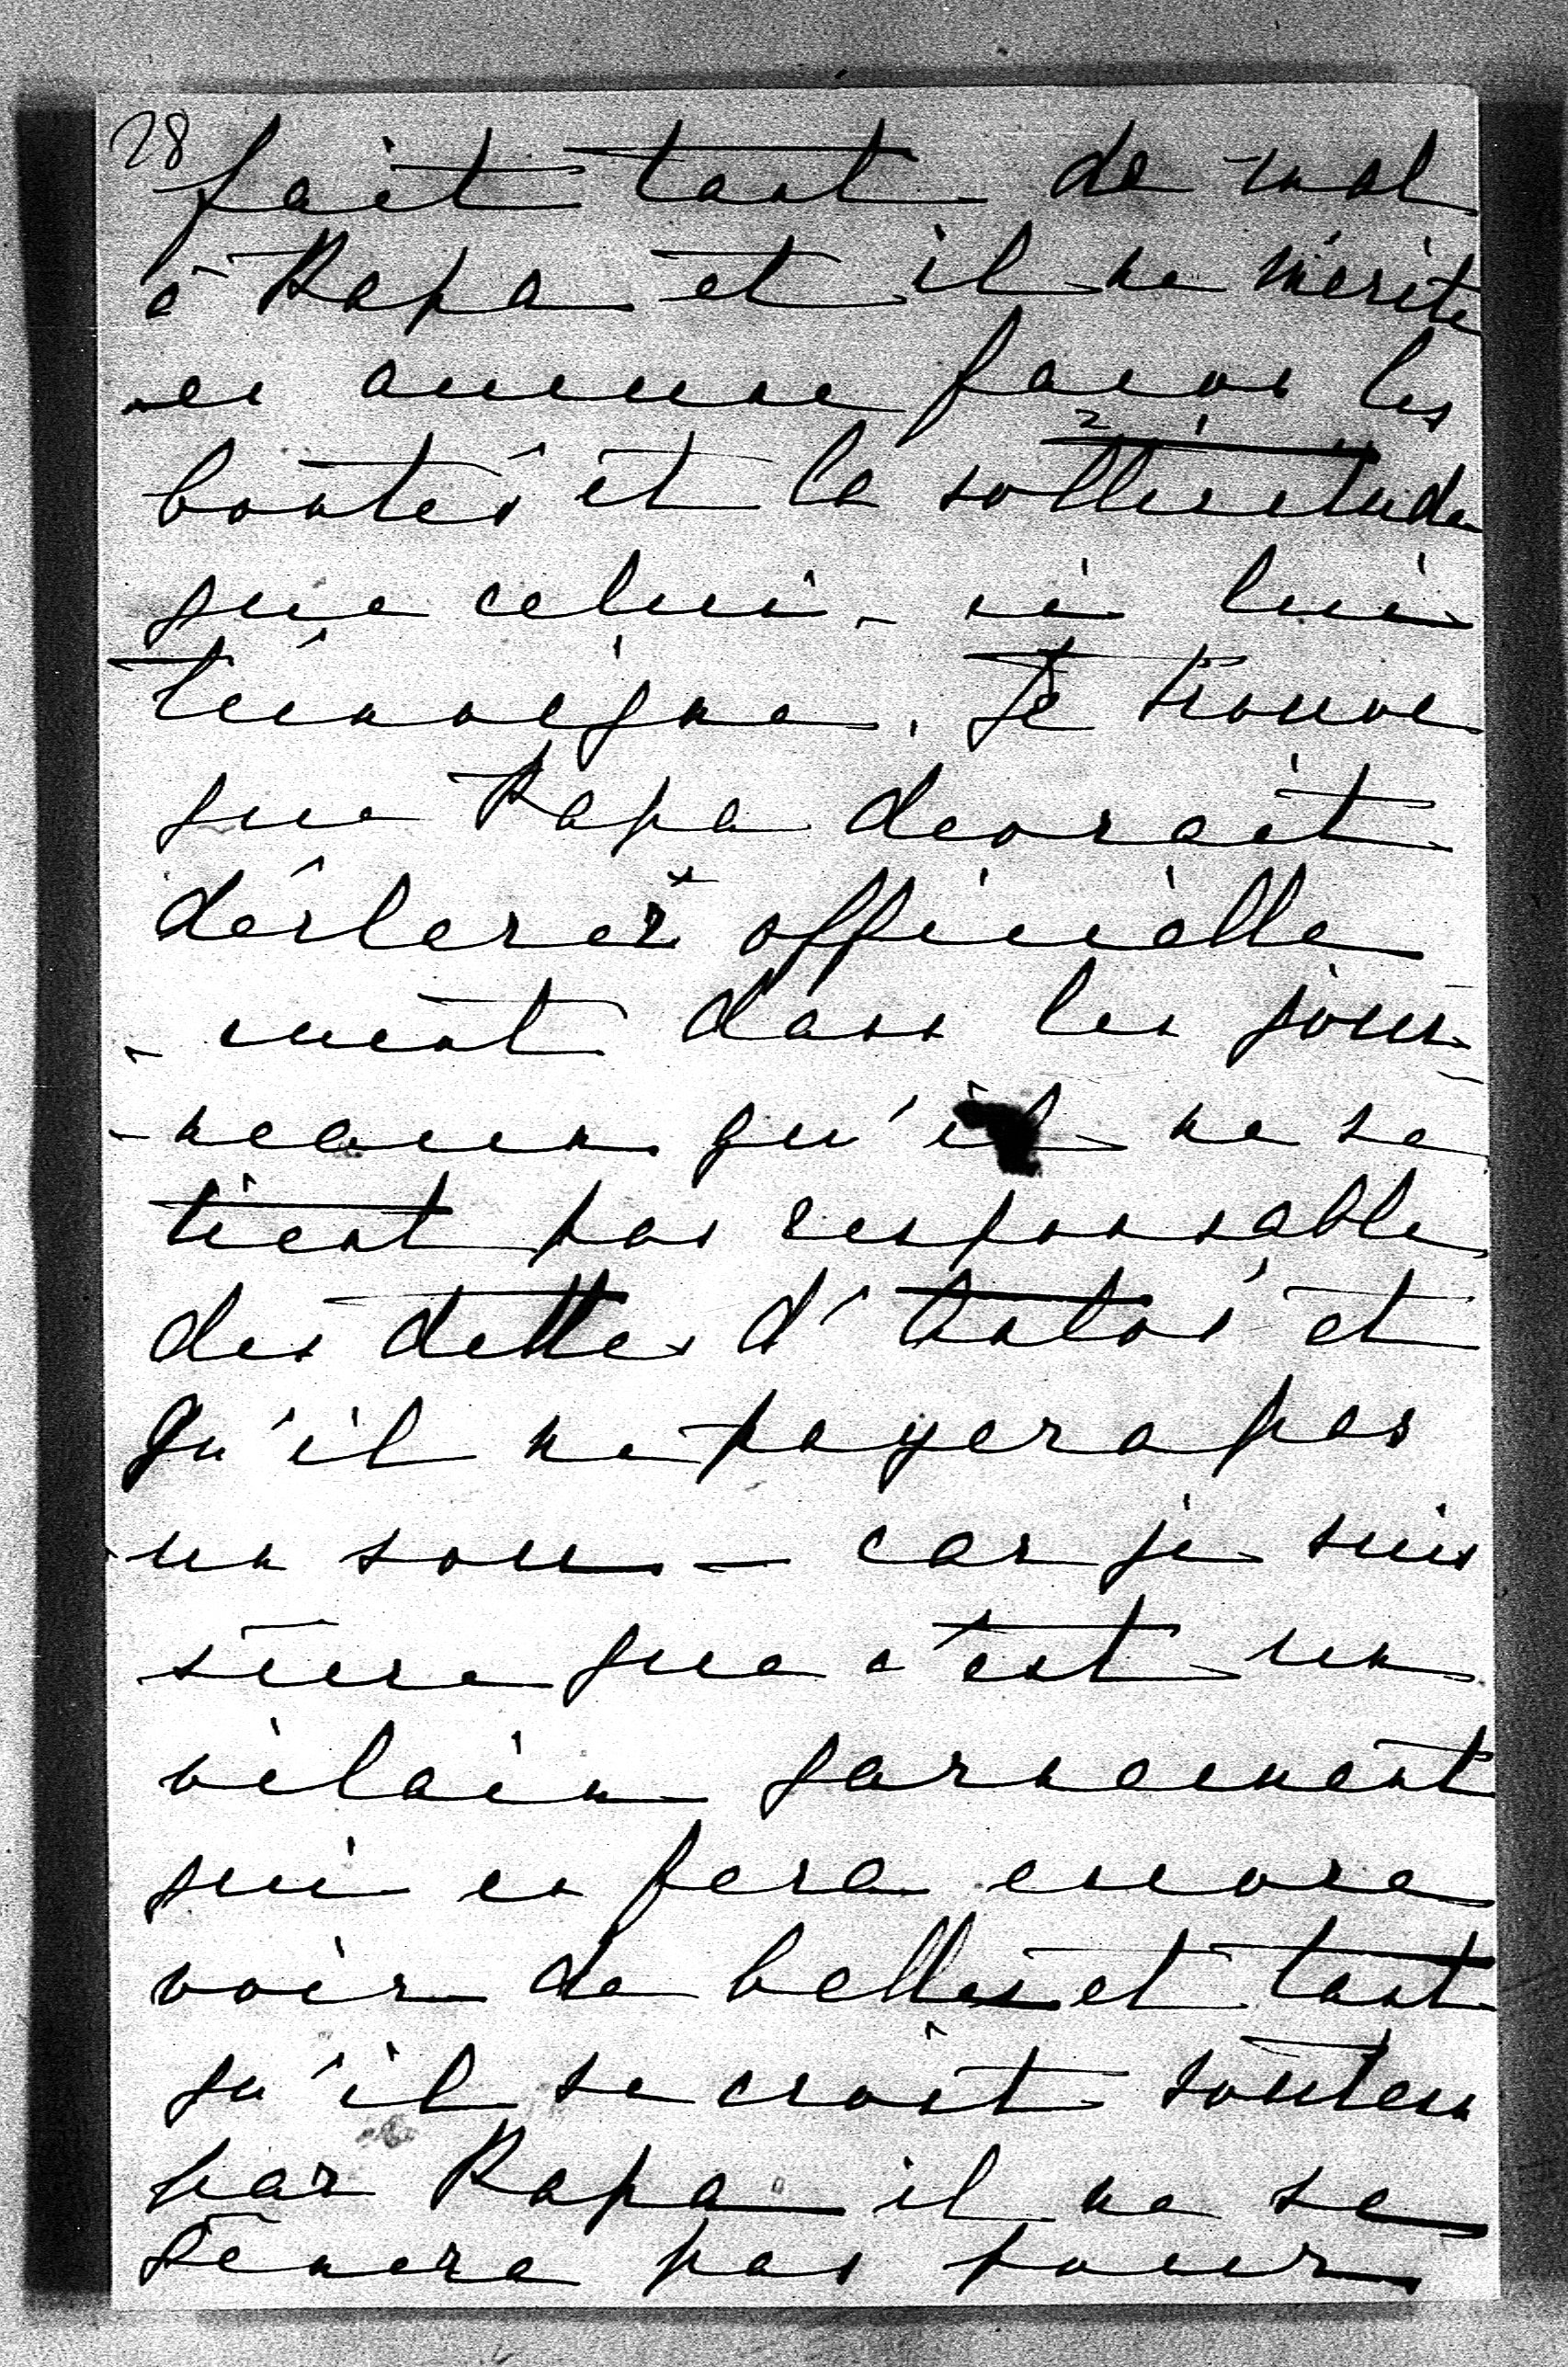 28
fait tant de mal
à Papa et il ne mérite
en aucune façon les
bontés et la sollicitude
que celui-ci lui
témoigne. Je trouve
que Papa devrait
déclarer officielle
-ment dans les jour-
-neaux qu'il ne se
tient pas responsable
des dettes d'Antos et
qu'il ne payera pas
un sou – car je suis
sûre que c'est un
vilain garnement
qui en fera encore
voir de belles et tant
qu'il se croit soutenu
par Papa il ne se
gênera pas pour